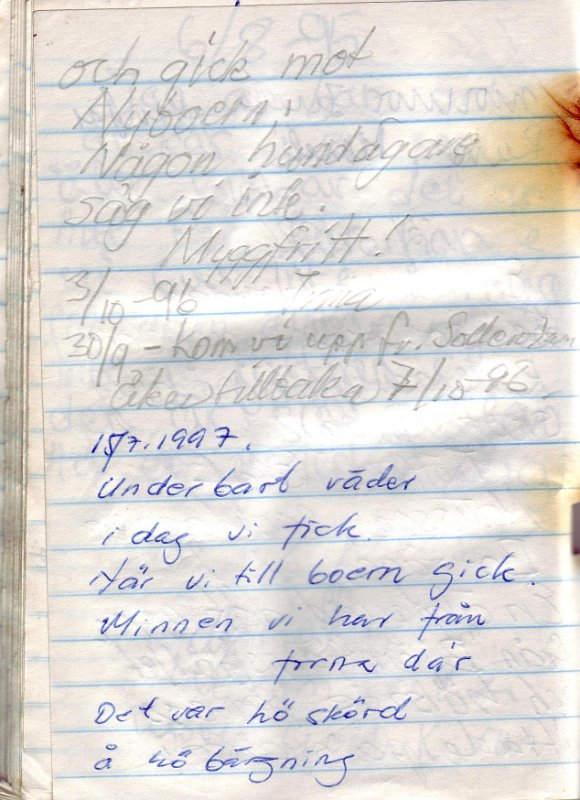 och gick mot
Nyboern.
Någon hundägare
såg vi inte.
Myggfritt!
3/10-96
30/9 - kom vi upp fr. Söderhamn
åker tillbaka 7/10-96.
15/7.1997.
Underbart väder
i dag vi fick.
När vi till boern gick.
Minnen vi har från
förna där
Det var hö skörd
å hö bärgning